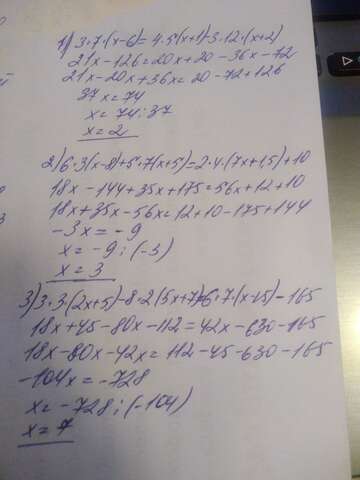 1) 3·7·(x-6)=4·5(x+1)-3·12·(x+2)
21x-126=20x+20-36x-72
21x-20x+36x=20-72+126
37x=74
x=74:37
x=2
2) 6·3(x-8)+5·7(x+5)=2·4·(7x+1,5)+10
18x-144+35x+175=56x+12+10
18x+35x-56x=12+10-175+144
-3x=-9
x=-9:(-3)
x=3
3) 3·3(2x+5)-8·2(5x+7)=6·7·(x-15)-165
18x+45-80x-112=42x-630-165
18x-80x-42x=112-45-630-165
-104x=-728
x=-728:(-104)
x=7